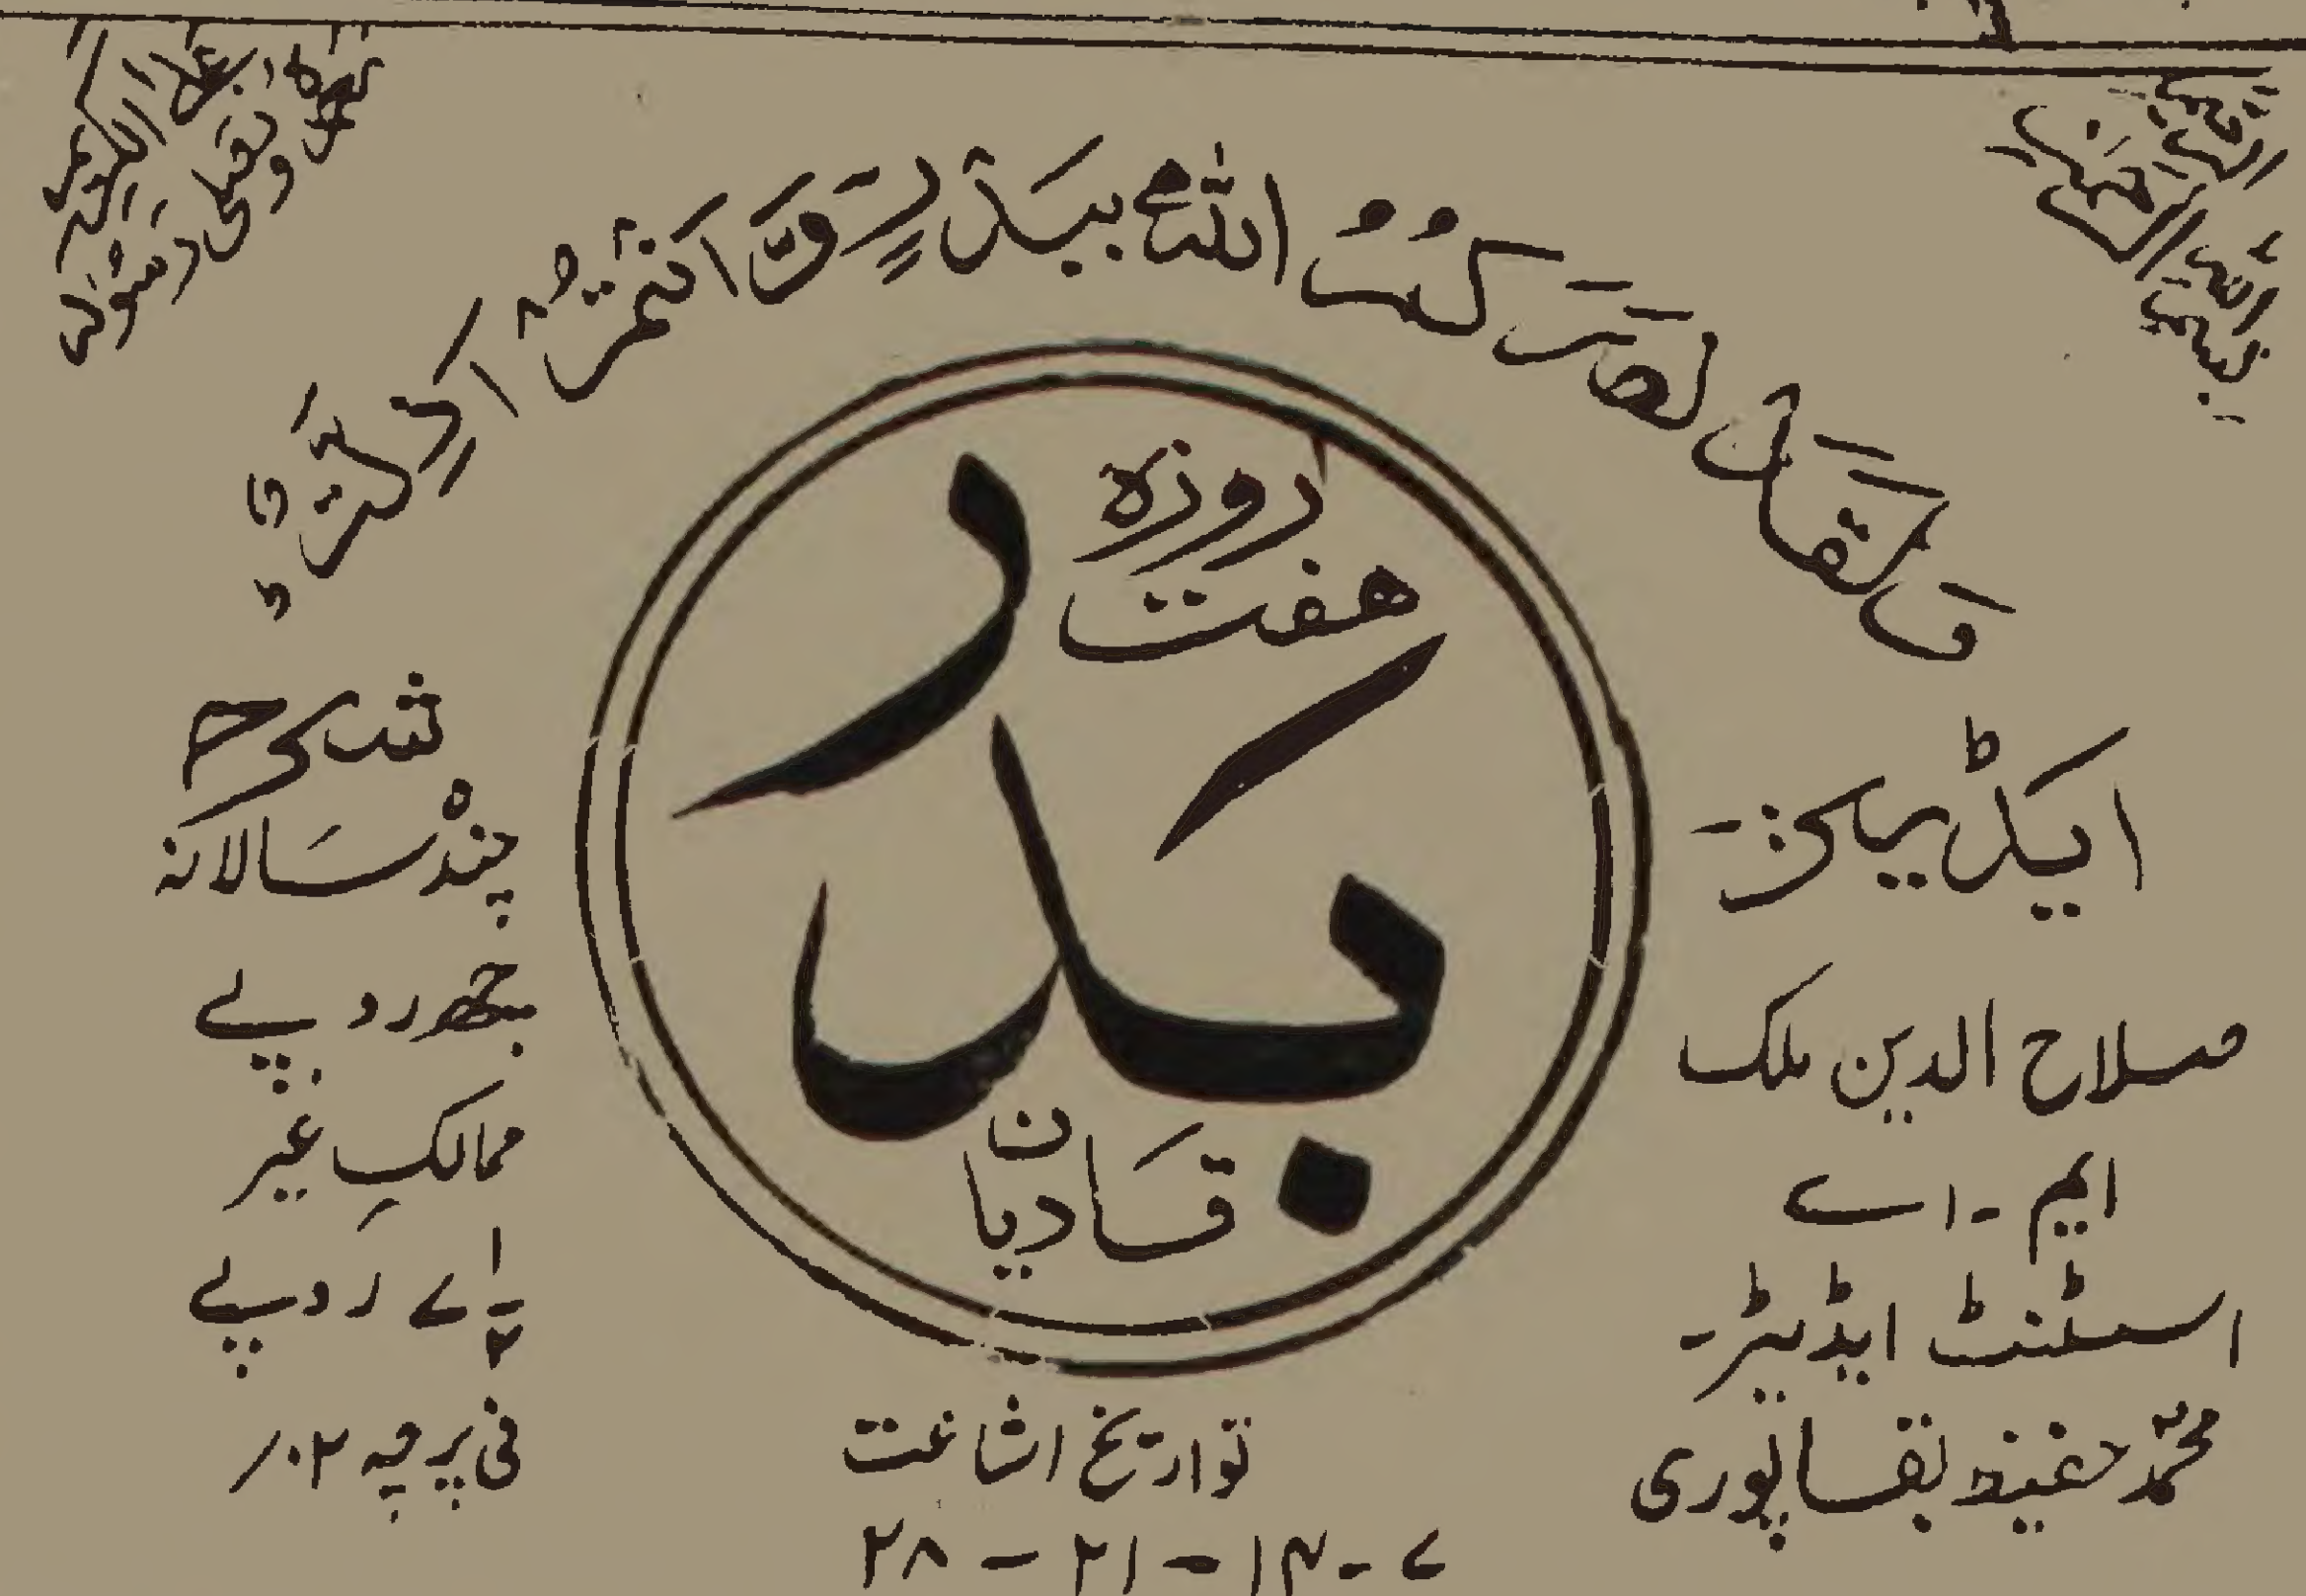 بسم الله الرحمن الرحيم
نحمده ونصلی علی رسوله الکریم
وَلَقَدْ نَصَرَكُمُ اللهُ بِبَدْرٍ وَّاَنْتُمْ اَذِلَّةٌ
هفت روزه
بدر
قادیان
ایڈیٹر:-
صلاح الدین ملک
ایم - اے
اسسٹنٹ ایڈیٹر-
محمد حفیظ بقاپوری
شرح
چندہ سالانہ
چھ روپے
ممالکِ غیر
روپے
فی پرچہ ۰۲/
تواریخ اشاعت
۷-۱۴-۲۱-۲۸